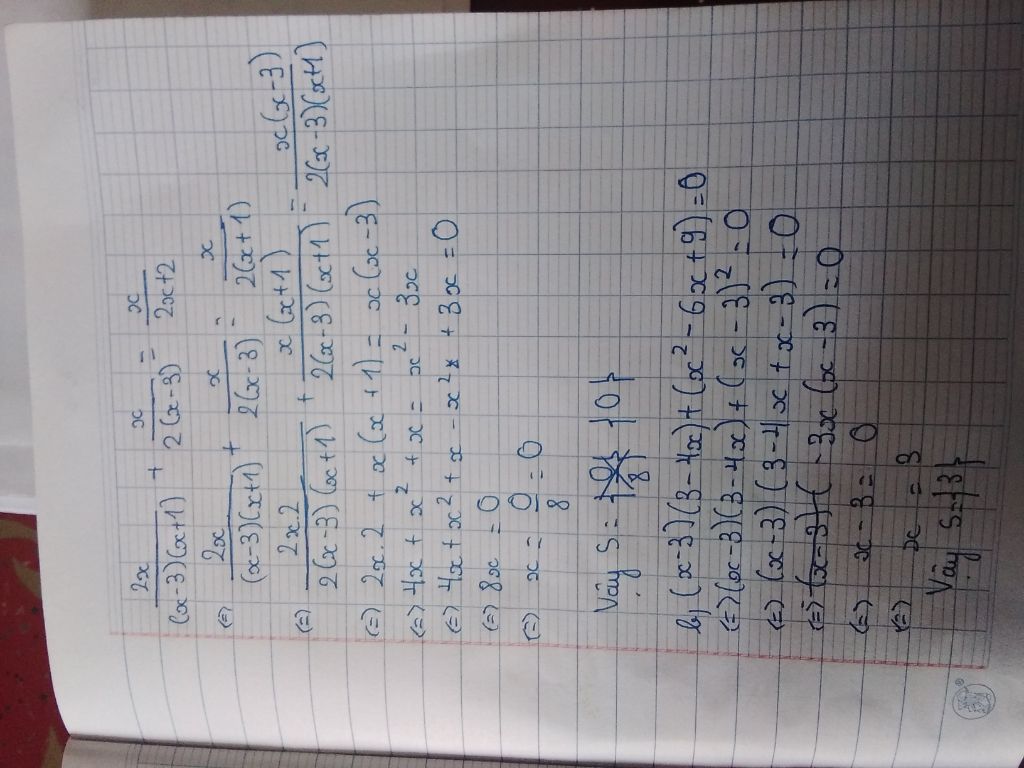 2x/((x-3)(x+1)) + x/(2(x-3)) = x/(2x+2)
(=) 2x/((x-3)(x+1)) + x/(2(x-3)) = x/(2(x+1))
(=) 2x2/(2(x-3)(x+1)) + x(x+1)/(2(x-3)(x+1)) = x(x-3)/(2(x-3)(x+1))
(=) 2x.2 + x(x+1) = x(x-3)
(=) 4x + x² + x = x² - 3x
(=) 4x + x² + x - x² + 3x = 0
(=) 8x = 0
(=) x = 0/8 = 0
Vậy S = {0}
b, (x-3)(3-4x)+(x²-6x+9)=0
(=) (x-3)(3-4x)+(x-3)²=0
(=) (x-3)(3-4x+x-3)=0
(=) (x-3)(-3x(x-3)=0
(=) x-3=0
(=) x=3
Vậy S={3}